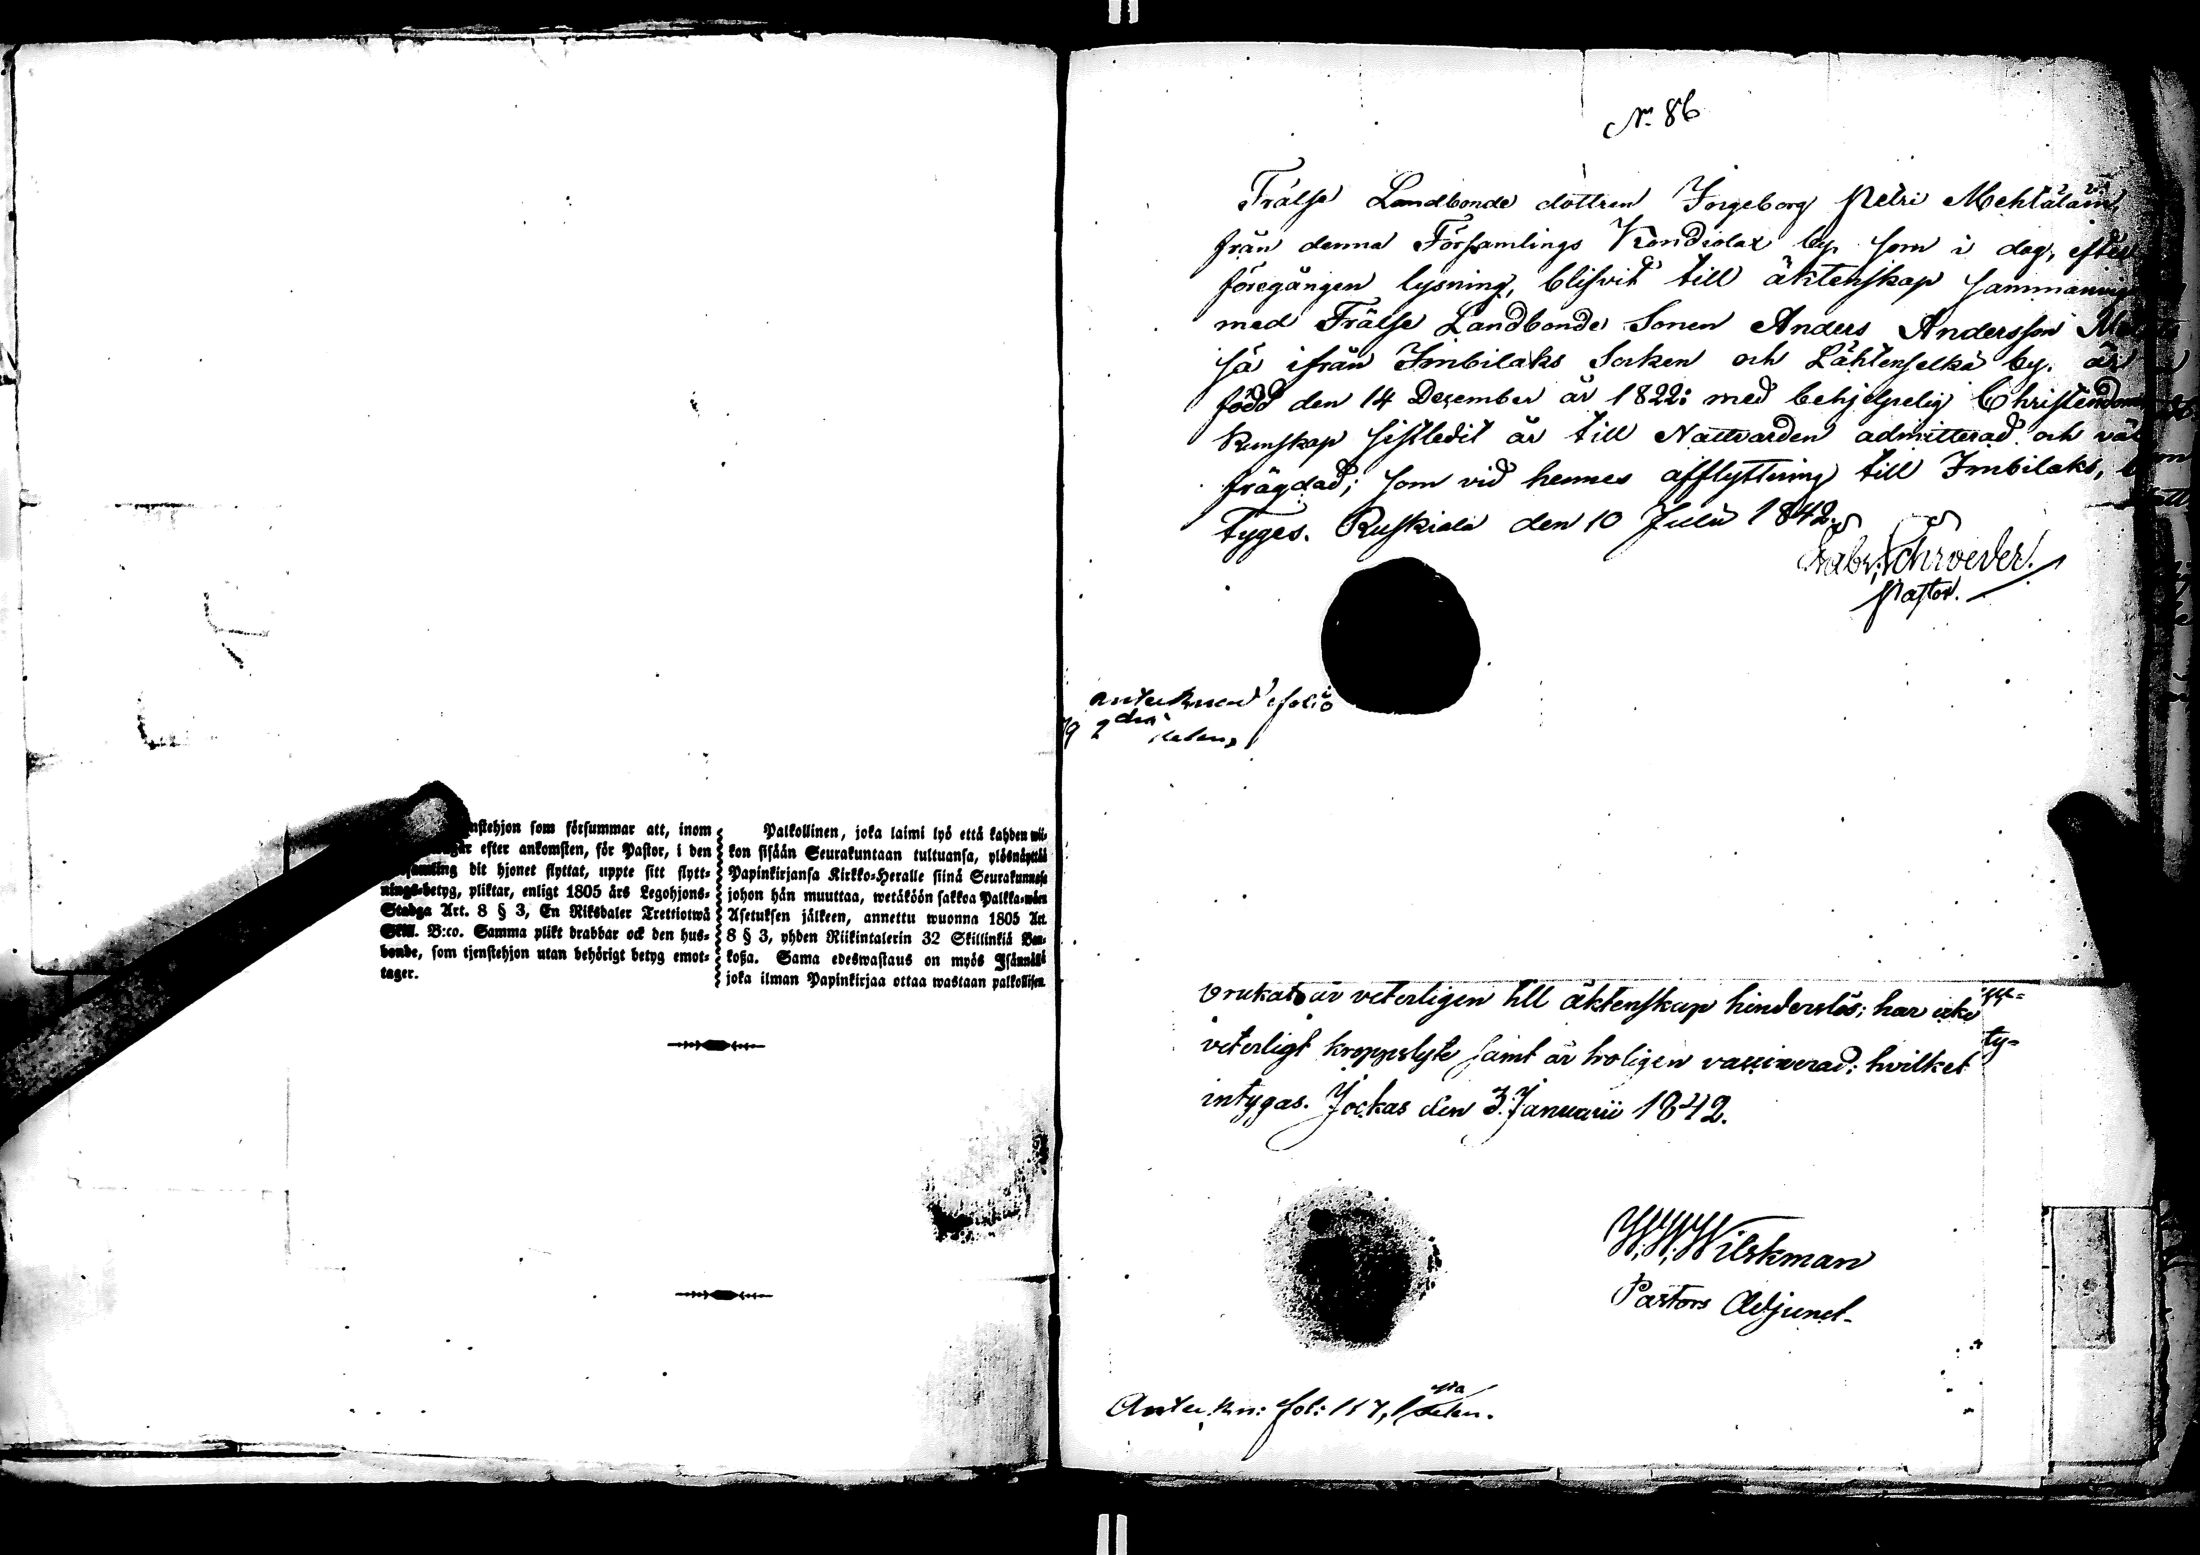 nstehjon som försummar att, inom
efter ankomsten, för Pastor, i den
samling dit hjonet flyttat, uppte sitt flytt-
nings-betyg, pliktar, enligt 1805 års Legohjons-
Stadga Art. 8 § 3, En Riksdaler Trettiotwå
Skill. B:co. Samma plikt drabbar ock den hus-
bonde, som tjenstehjon utan behörigt betyg emot-
tager.
Palkollinen, joka laimi lyö että kahden wii-
kon sisään Seurakuntaan tultuansa, ylösnäyttää
Papinkirjansa Kirkko-Heralle siinä Seurakunnasa
johon hän muuttaa, wetäköön sakkoa Palkka-wäen
Asetuksen jälkeen, annettu wuonna 1805 Art.
8 § 3, yhden Riikintalerin 32 Skillinkiä Ban-
koßa. Sama edeswastaus on myös Isännällä
joka ilman Papinkirjaa ottaa wastaan palkollisen.
N:o 86
Frälse Landbonde dottren Ingeborg Petri Mehtäläin,
från denna Församlings Kondiolax by, som i dag, efter
föregången lysning, blifvit till äktenskap samman
med Frälse Landbonde Sonen Anders Andersson
ifrån Imbilaks Socken och Lähtenselkä by. är
född den 14 December år 1822: med behjelpelig Christendoms
Kunskap sistledit år till Nattvarden admitterad och väl
frägdad; som vid hennes afflyttning till Imbilaks,
tyges. Ruskiala den 10 Julii 1842.
Gabr. Schroeder.
Pastor.
antecknad folio
79 2dra sidan
Orukat är veterligen till äktenskap hinderslös; har icke
veterligt kroppslyte samt är troligen vaccinerad: hvilket
ty-
intygas. Jockas den 3 Januarii 1842.
Wilskman
Pastors Adjunct.
Anteckn: fol: 117, 1sta sidan.